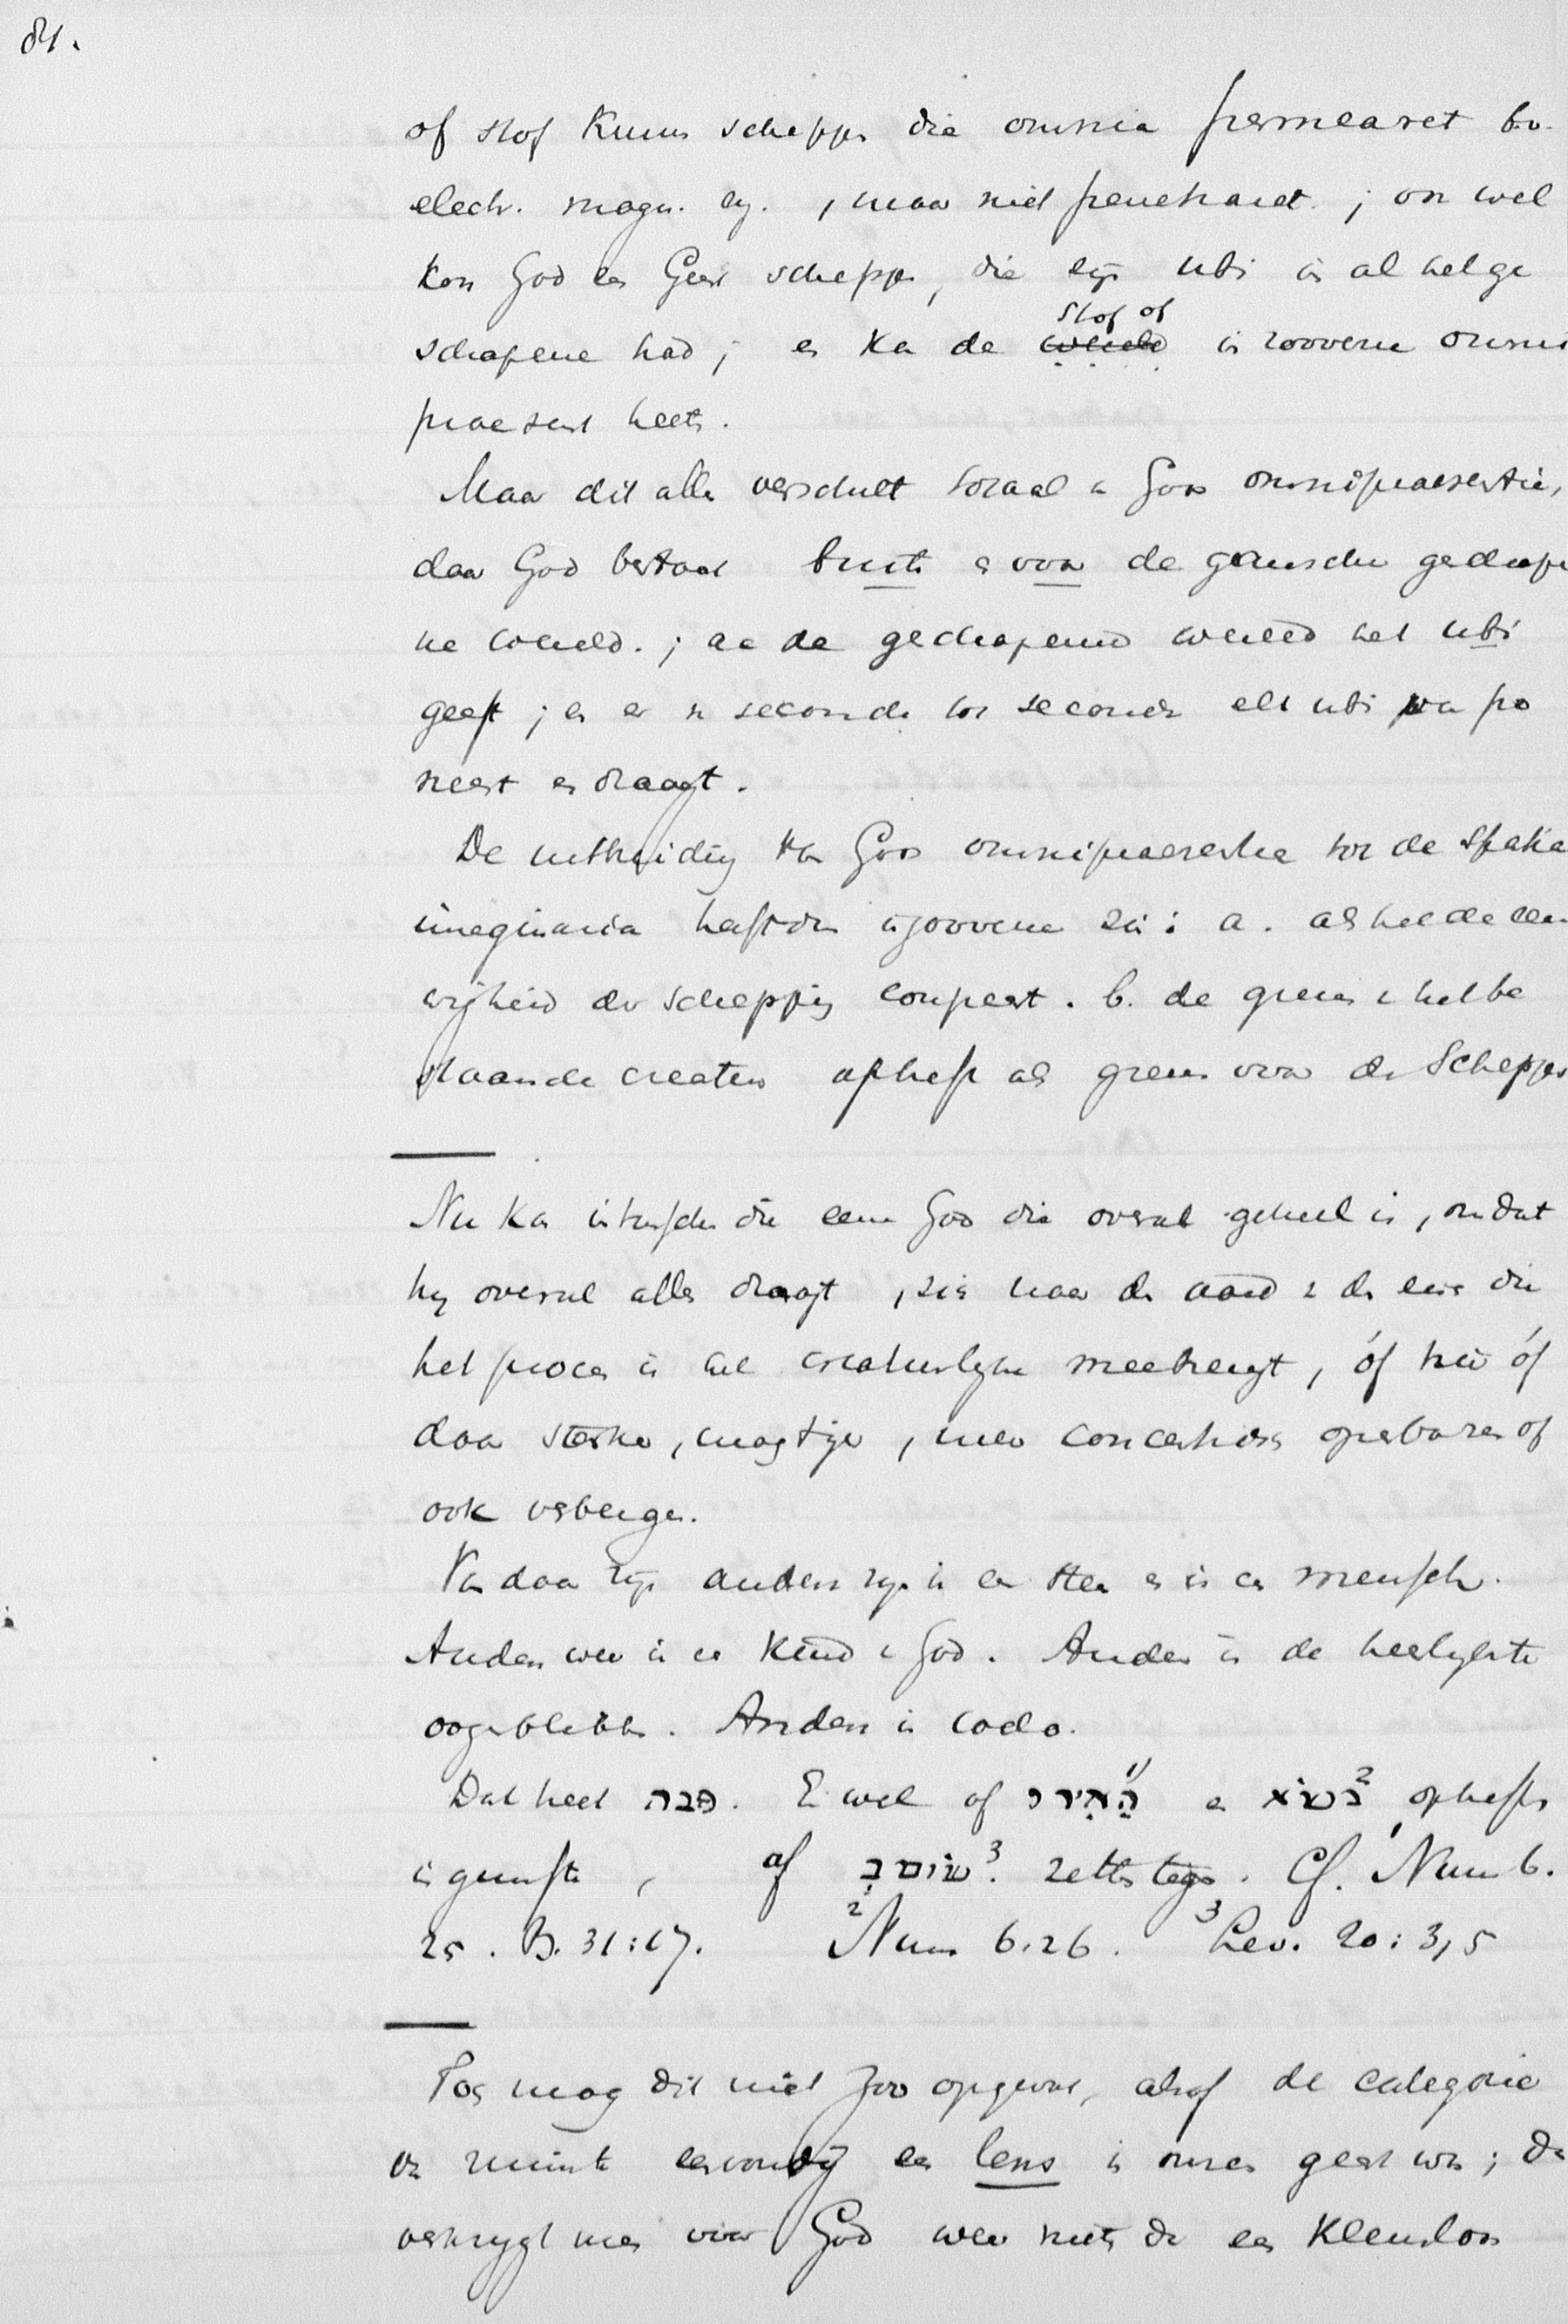 81.
of stof kunnen scheppen die omnia permearet bv.
electr. magn. , maar niet penetraret ; en wel
kon God een Geest scheppen, die zijn ubi in al het ge
schapene had ; en kan de stof of in zooverre omni
praesent heeten.
Maar dit alles verschilt totaal v. Gods omnipraesentie,
daar God bestaat buiten en voor de gansche geschape
ne wereld. ; aan de geschapene wereld het ubi
geeft ; en er v. seconde tot seconde elk ubi van po
neert en draagt.
De uitbreiding van Gods omnipraesentie tot de spatia
imaginaria heeft dan in zooverre zin : a. als het de
wijheid der schepping coupeert. b. de grens v. het be
staande creatuur opheft als grens voor den Schepper
Nu kan intusschen die eene God die overal geheel is, omdat
hij overal alles draagt , zich naar den aard v. den eisch dien
het proces in het creatuurlijke meebrengt, óf hier óf
daar sterker, machtiger, meer openbaren of
ook verbergen.
Van daar zijn anders zijn in een steen en in een mensch.
Anders weer in een kind v. God. Anders in de heerlijkste
oogenblikken. Anders in coelo.
Dat heet פנה. En wel of האיר 1) en נשוא 2 opheffen
in gunste , of שׂום ב 3. zetten tegen. Cf. 1 Num 6.
25. Ps. 31:17. 2 Num 6.26. 3 Lev. 20:3,5
Toch mag dit niet zoo opgevat, alsof de categorie
van ruimte eenvoudig een lens in onzen geest was ; dan
verkrijgt men voor God weer niets dan een kleurloos